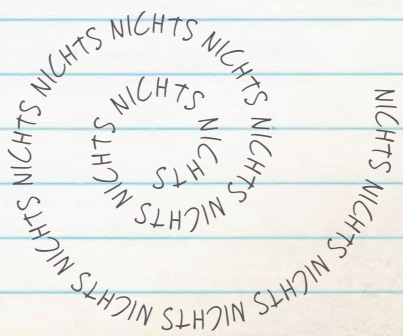 NICHTS NICHTS NICHTS NICHTS NICHTS NICHTS NICHTS NICHTS NICHTS NICHTS NICHTS NICHTS NICHTS NICHTS NICHTS